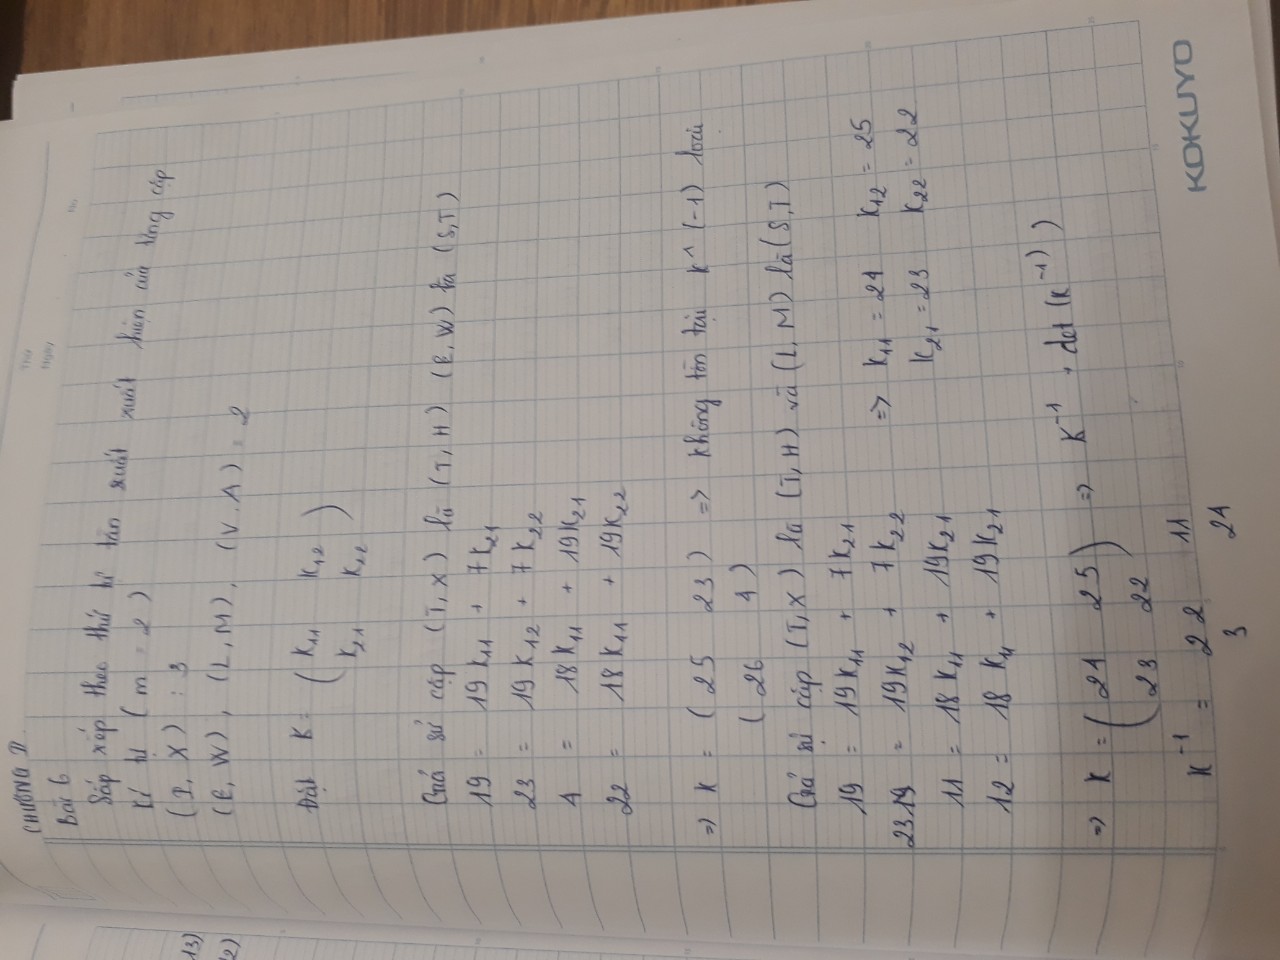 Thứ
Ngày
No
CHƯƠNG II
Bài 6
Sắp xếp theo thứ tự tần suất xuất hiện của từng cặp
kí tự ( m = 2 )
(I, X) : 3
(E, W), (L, M), (V, A) = 2
Đặt K = ( K11 K12 )
K21 K22
Giả sử cặp (I, X) là (T, H) (E, W) là (S, T)
19 = 19 K11 + 7K21
23 = 19 K12 + 7K22
4 = 18 K11 + 19K21
22 = 18 K11 + 19K22
=> K = ( 25 23 ) => không tồn tại K^(-1) loại
( 26 4 )
Giả sử cặp (I, X) là (T, H) và (L, M) là (S, T)
19 = 19 K11 + 7K21
23 19 = 19K12 + 7K22 => K11 = 24 K12 = 25
11 = 18 K11 + 19K21 K21 = 23 K22 = 22
12 = 18 K11 + 19K21
=> K = ( 24 25 ) => K-1 , det (K-1) )
23 22
K-1 = 22 11
3 24
KOKUYO
13)
2)